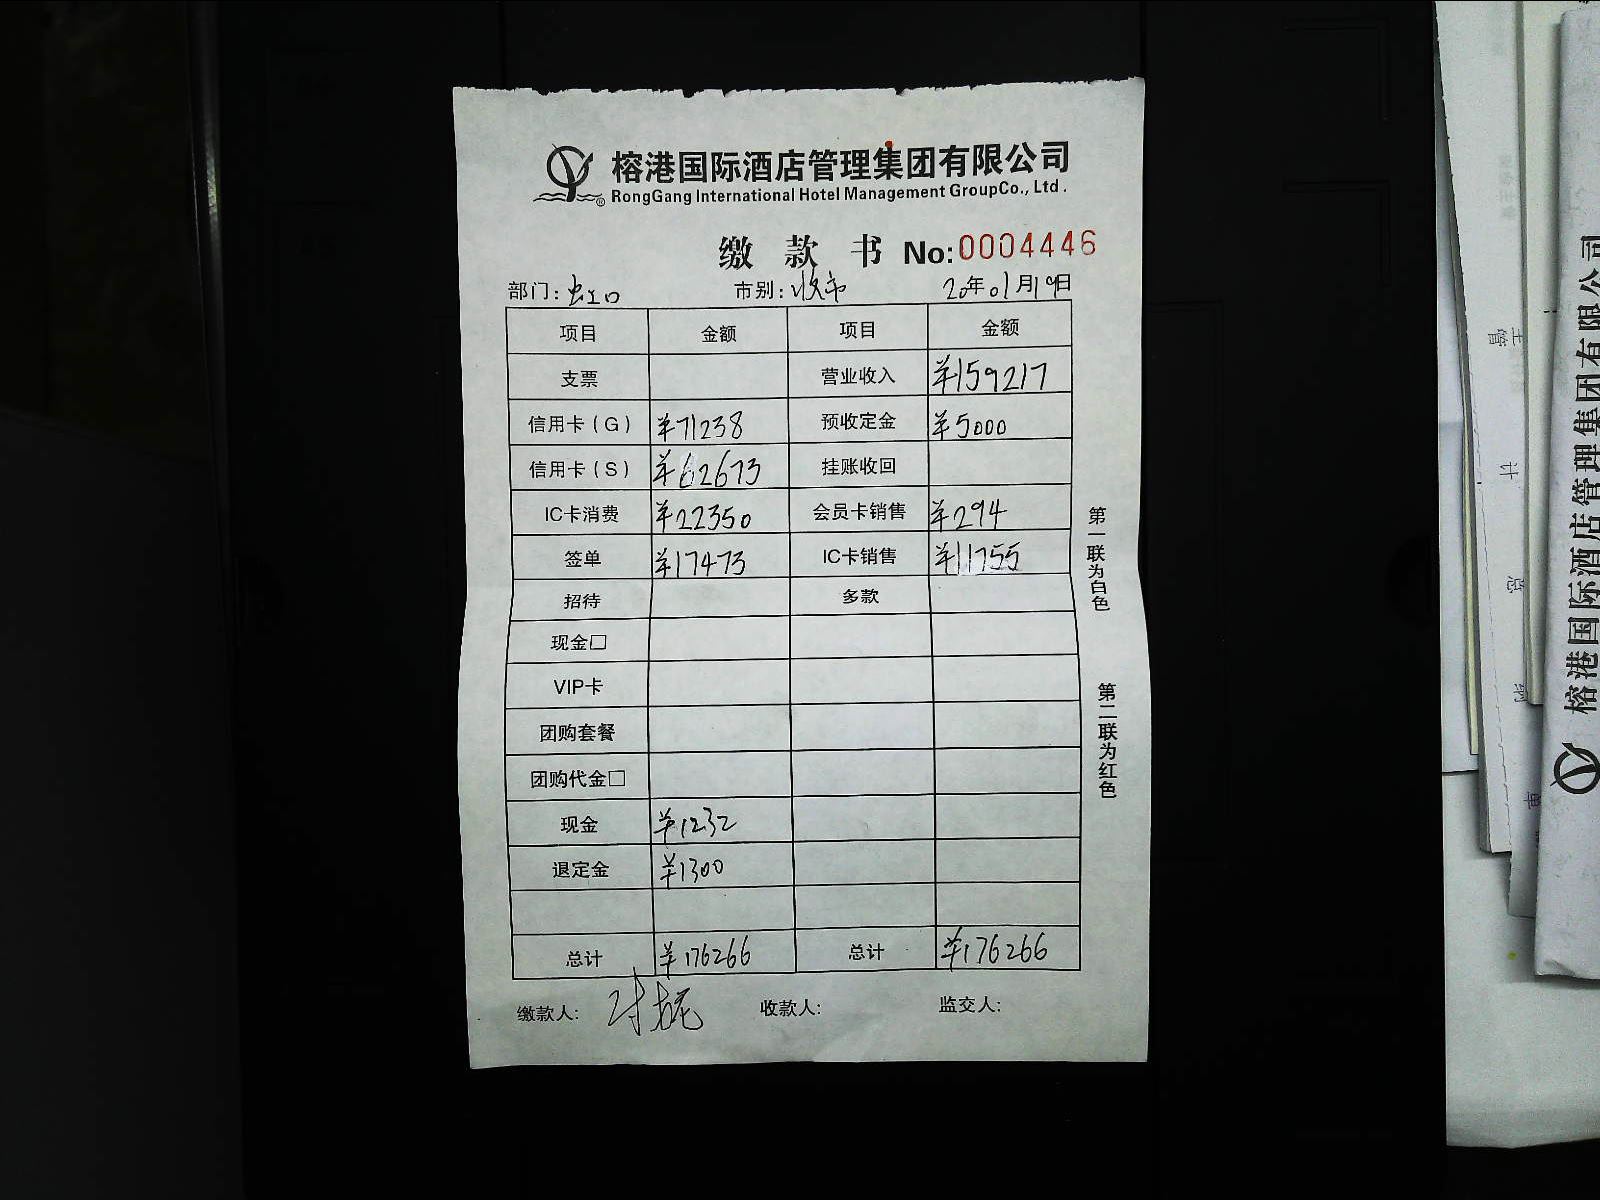 榕港国际酒店管理集团有限公司
® RongGang International Hotel Management GroupCo., Ltd.
缴 款 书 No:0004446
部门:虹口 市别:收市 20年01月19日
项目 金额 项目 金额
支票 营业收入 ¥159217
信用卡(G) ¥71238 预收定金 ¥5000
信用卡(S) ¥62673 挂账收回
IC卡消费 ¥22350 会员卡销售 ¥294
签单 ¥17473 IC卡销售 ¥11755
招待 多款
现金□
VIP卡
团购套餐
团购代金□
现金 ¥1232
退定金 ¥1300
总计 ¥176266 总计 ¥176266
缴款人: 收款人: 监交人:
第一联为白色
第二联为红色
主管
计
总
单
榕港国际酒店管理集团有限公司